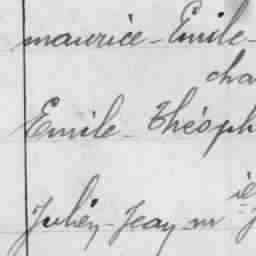 maurice - Emile -
cha
Emile - Théoph
Julien - Jean - m